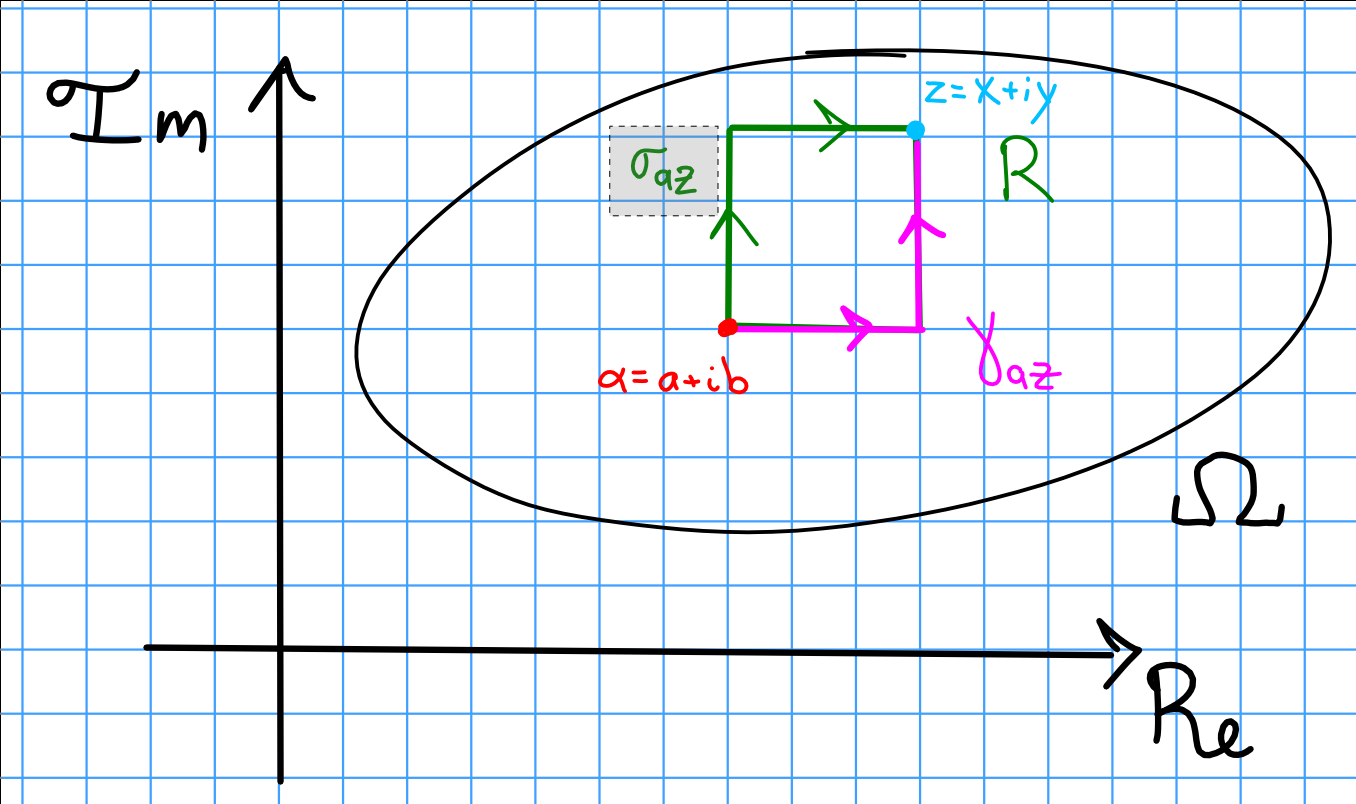 Im
z = x+iy
σaz
R
α = a+ib
γaz
Ω
Re